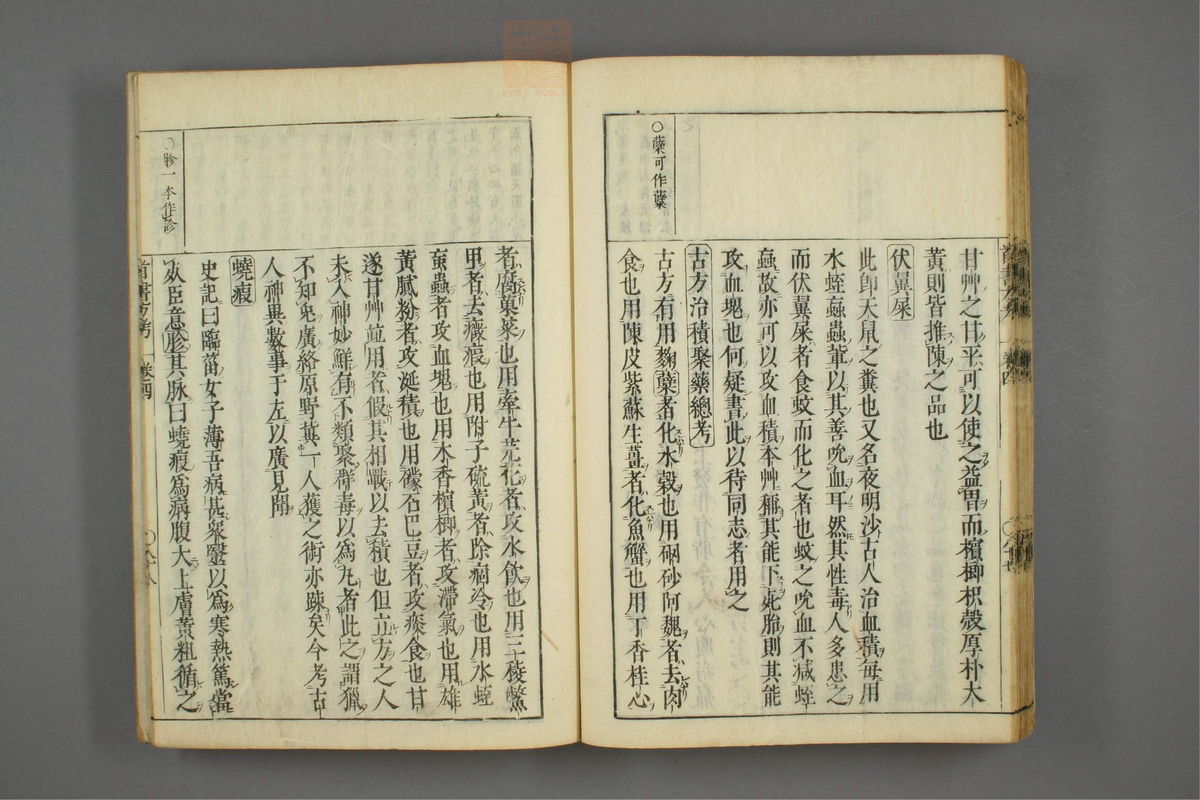 ○蘗可作糵
甘艸之甘平可以使之益胃而檳榔枳殼厚朴大
黃則皆推陳之品也
伏翼屎
此卽天鼠之糞也又名夜明沙古人治血積每用
水蛭䖟蟲輩以其善吮血耳然其性毒人多患之
而伏翼屎者食蚊而化之者也蚊之吮血不減蛭
䖟故亦可以攻血積本艸稱其能下死胎則其能
攻血塊也何疑書此以待同志者用之
古方治積聚藥總考
古方有用麴蘗者化水穀也用硇砂阿魏者去肉
食也用陳皮紫蘇生薑者化魚蟹也用丁香桂心
者腐菓菜也用牽牛芫花者攻水飮也用三稜鱉
甲者去癥瘕也用附子硫黃者除痼冷也用水蛭
䖟蟲者攻血塊也用木香檳榔者攻滯氣也用雄
黃膩粉者攻涎積也用礞石巴豆者攻痰食也甘
遂甘艸並用者假其相戰以去積也但立方之人
未入神妙鮮有不類聚群毒以爲丸者此之謂獵
不知兔廣絡原野蓂一人獲之術亦踈矣今考古
人神異數事于左以廣見聞
蟯瘕
史記曰臨菑女子薄吾病甚衆醫以爲寒熱篤當
死臣意胗其脉曰蟯瘕爲病腹大上膚黃粗循之
○胗一本作診